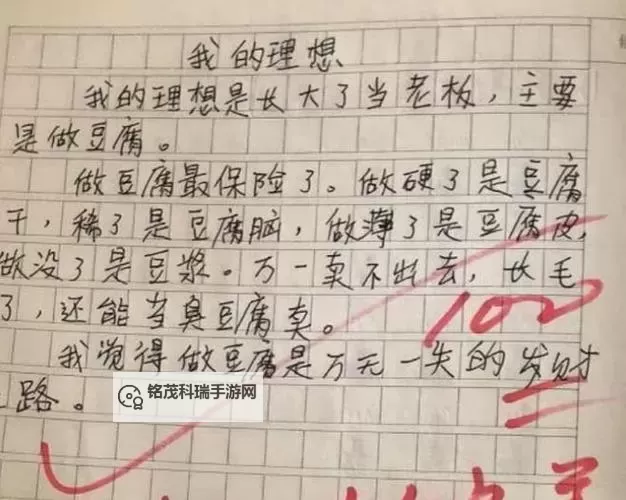 我的理想
我的理想是长大了当老板，主要
是做豆腐。
做豆腐最保险了。做硬了是豆腐
干，稀了是豆腐脑，做薄了是豆腐皮，
做没了是豆浆。万一卖不出去，长毛
了，还能当臭豆腐卖。
我觉得做豆腐是万无一失的发财
之路。
100
铭茂科瑞手游网